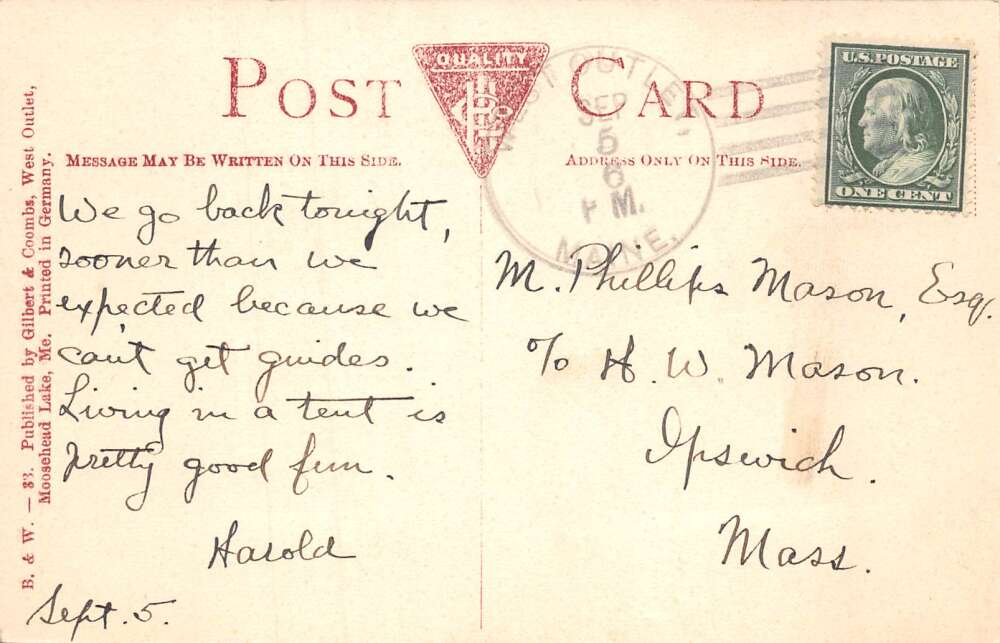 POST CARD
QUALITY
U.S. POSTAGE
ONE CENT
WEST OUTLET
SEP
5
6
PM.
MAINE.
MESSAGE MAY BE WRITTEN ON THIS SIDE.
ADDRESS ONLY ON THIS SIDE.
B. & W. — 33. Published by Gilbert & Coombs, West Outlet,
Moosehead Lake, Me. Printed in Germany.
We go back tonight,
sooner than we
expected because we
can't get guides.
Living in a tent is
pretty good fun.
Harold
Sept. 5.
M. Phillips Mason, Esq.
℅ H. W. Mason.
Ipswich.
Mass.